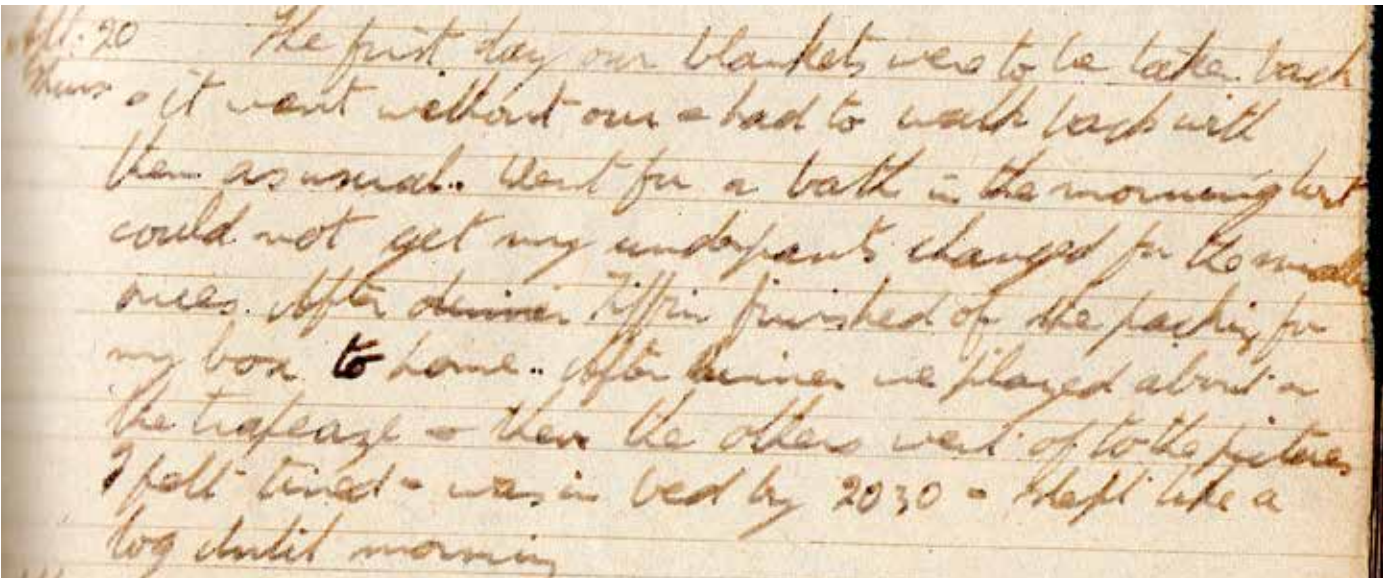 20 The first day our blankets were to be taken back
Thurs & it went without our & had to walk back with
them as usual.. Went for a bath in the morning but
could not get my underpants changed for the
ones. After dinner Tiffin finished of the packing for
my box to home.. After dinner we played about on
the trapeaze & then the others went of to the pictures
I felt tired & was in bed by 2030 & slept like a
log until morning